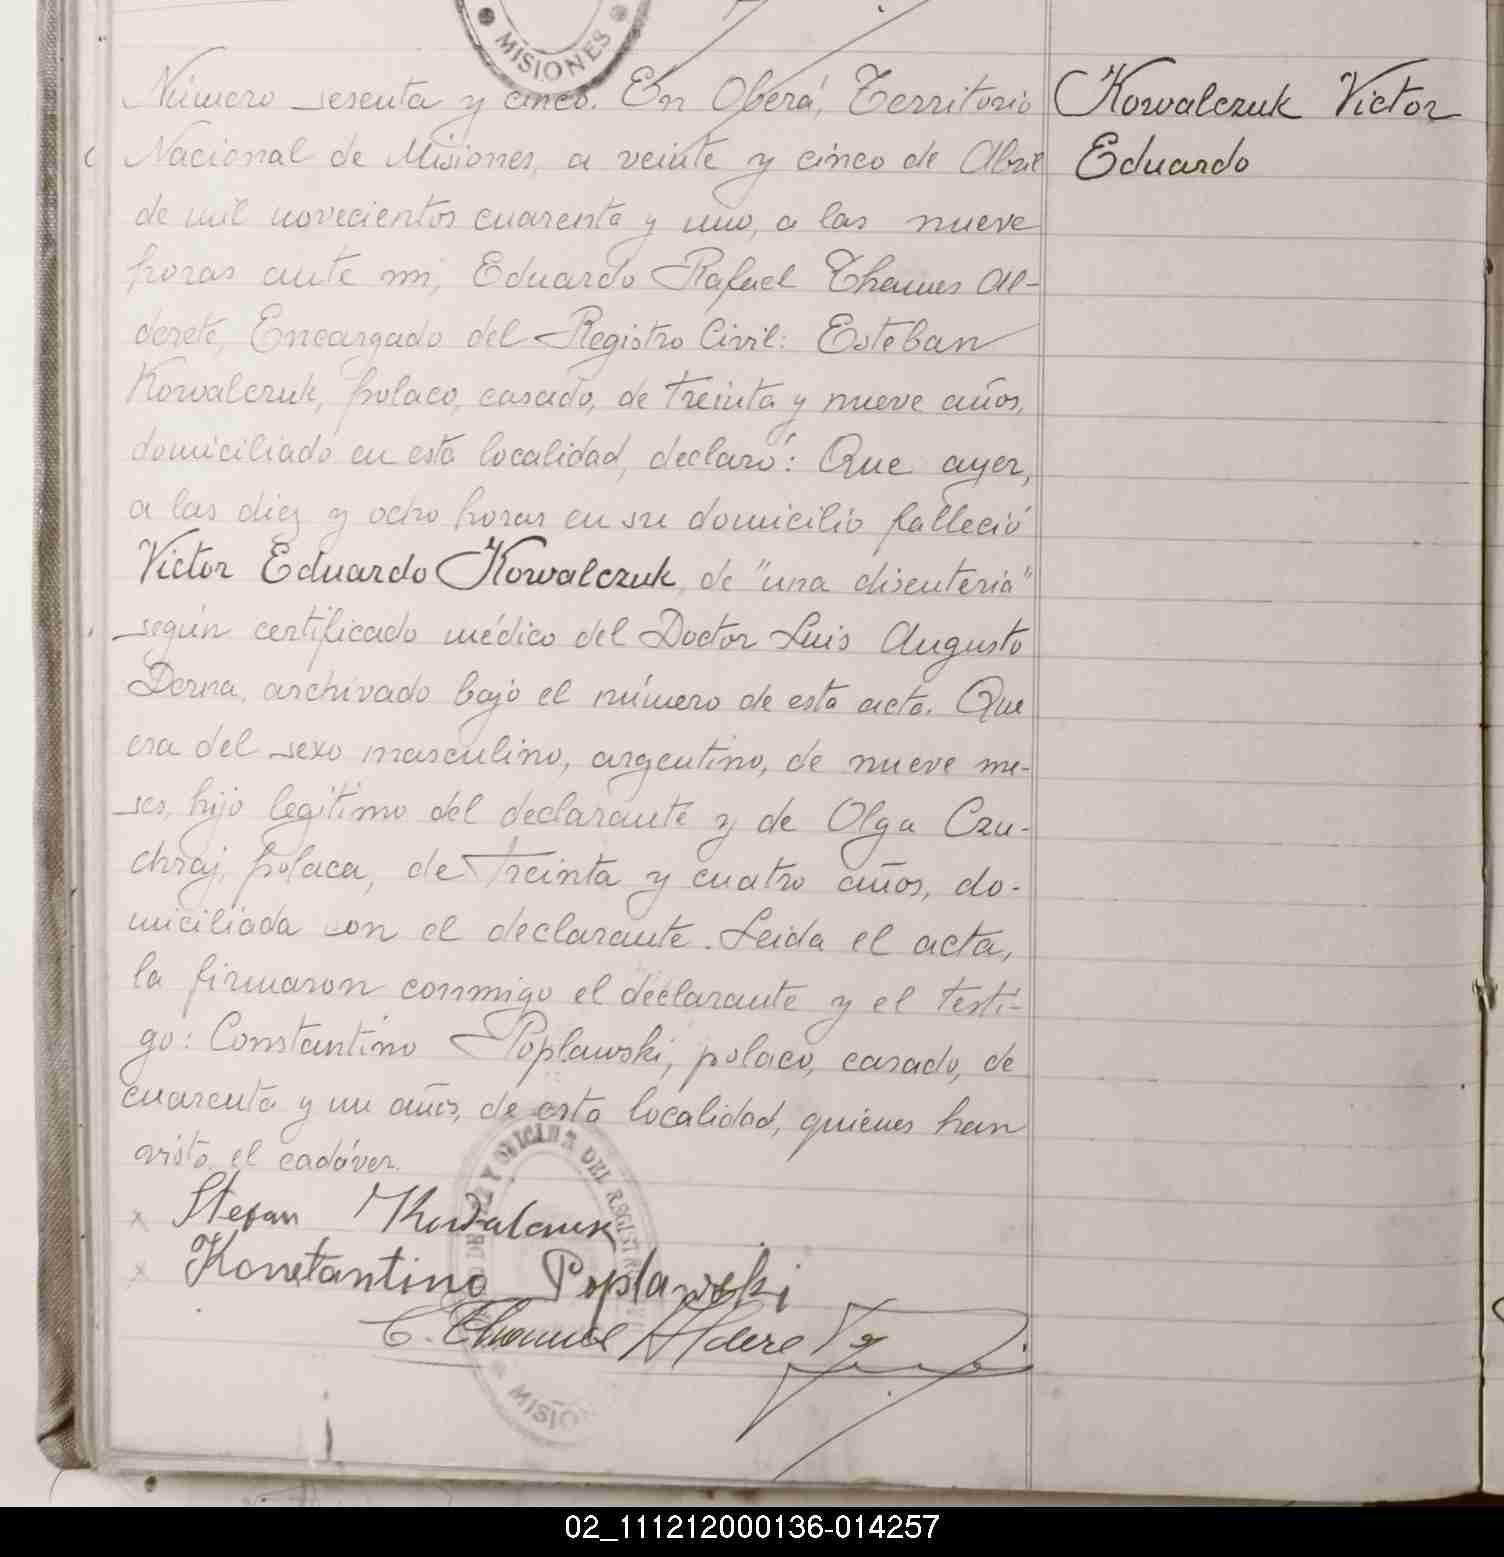 MISIONES
Número sesenta y cinco. En Oberá, Territorio
Kowalczuk Victor
Nacional de Misiones, a veinte y cinco de Abril
Eduardo
de mil novecientos cuarenta y uno, a las nueve
horas ante mi, Eduardo Rafael Thames Al-
derete, Encargado del Registro Civil: Esteban
Kowalczuk, polaco, casado, de treinta y nueve años,
domiciliado en esta localidad, declaró: Que ayer,
a las diez y ocho horas en su domicilio falleció
Victor Eduardo Kowalczuk, de "una disenteria"
según certificado médico del Doctor Luis Augusto
Derna, archivado bajo el número de esta acta. Que
era del sexo masculino, argentino, de nueve me-
ses, hijo legítimo del declarante y de Olga Czu-
chraj, polaca, de treinta y cuatro años, do-
miciliada con el declarante. Leida el acta,
la firmaron conmigo el declarante y el testi-
go: Constantino Poplawski, polaco, casado, de
cuarenta y un años, de esta localidad, quienes han
visto el cadáver.
x Stefan Kowalczuk
x Konstantino Poplawski
E. Thames Alderete
02_111212000136-014257